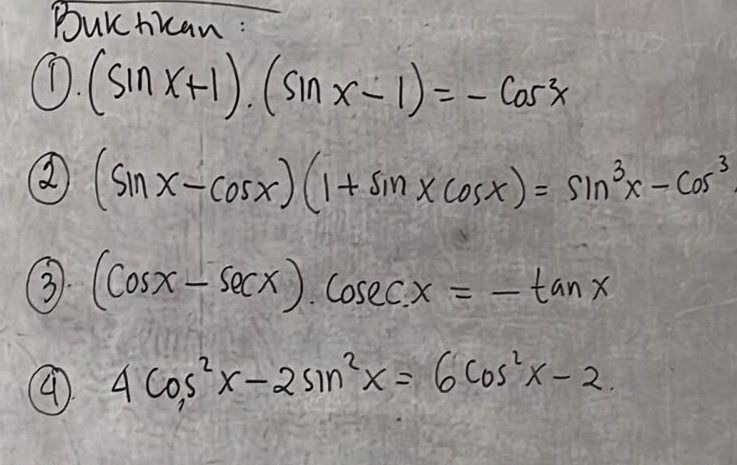 Buktikan :
①. (sin x+1). (sin x-1) = - Cos²x
② (sin x-cosx) (1 + sin x cosx) = sin³x - Cos³
③. (Cosx - Secx). Cosec.x = - tan x
④. 4 Cos²x-2 sin²x = 6 Cos²x-2.